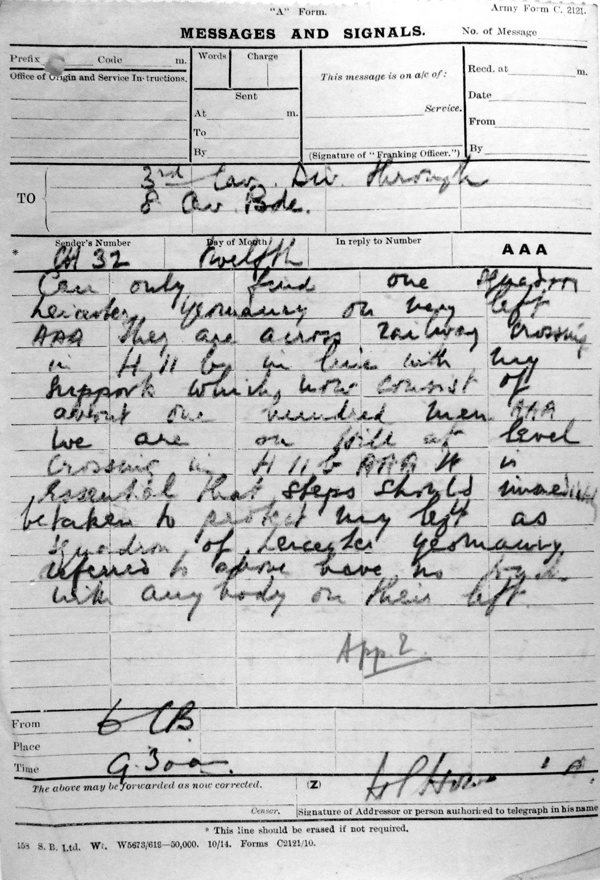 "A" Form.
Army Form C. 2121.
MESSAGES AND SIGNALS.
No. of Message
Prefix Code m.
Office of Origin and Service Instructions.
Words Charge
Sent
At m.
To
By
This message is on a/c of:
Service.
(Signature of "Franking Officer.")
Recd. at m.
Date
From
By
TO
3rd Cav. Div. through
8 Cav. Bde.
* Sender's Number Day of Month In reply to Number AAA
CH 32 Twelfth
Can only find one squadron
Leicester Yeomanry on my left
AAA They are across railway crossing
in H 11 b in line with my
support which now consist of
about one hundred men AAA
We are on hill at level
crossing in H 11 b AAA It is
essential that steps should immediately
be taken to protect my left as
squadron of Leicester Yeomanry
referred to above have no touch
with any body on their left.
App. 2.
From 6 CB
Place
Time 9.30 am.
The above may be forwarded as now corrected. (Z)
Censor. Signature of Addressor or person authorised to telegraph in his name
* This line should be erased if not required.
158 S. B. Ltd. Wt. W5673/619—50,000. 10/14. Forms C2121/10.